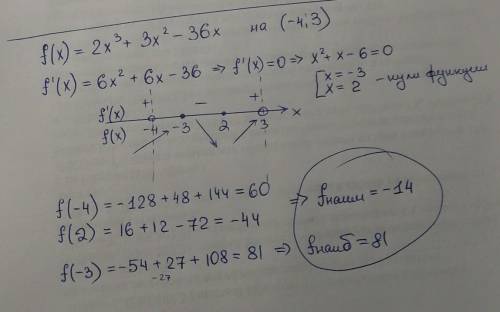 f(x) = 2x³ + 3x² - 36x на (-4; 3)
f'(x) = 6x² + 6x - 36 ⇒ f'(x) = 0 ⇒ x² + x - 6 = 0
[x = -3
x = 2 - нули функции
f'(x) + - +
f(x) -4 -3 2 3 x
f(-4) = -128 + 48 + 144 = 60
f(2) = 16 + 12 - 72 = -44 ⇒ fнаим = -14
f(-3) = -54 + 27 + 108 = 81 ⇒ fнаиб = 81
-27